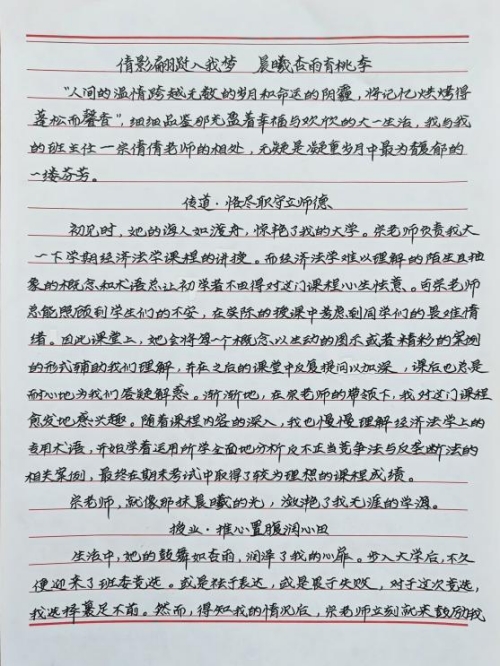 倩影翩跹入我梦 晨曦杏雨育桃李
"人间的温情跨越无数的岁月和命运的阴霾，将记忆烘烤得
蓬松而馨香"，细细品鉴那充盈着幸福与欢欣的大一生活，我与我
的班主任—宗倩倩老师的相处，无疑是凝重岁月中最为馥郁的
一缕芬芳。
传道·恪尽职守立师德
初见时，她的诲人如渡舟，惊艳了我的大学。宗老师负责我大
一下学期经济法学课程的讲授。而经济法学难以理解的陌生且抽
象的概念和术语总让初学者不由得对这门课程心生怯意。可宗老师
总能照顾到学生们的不安，在实际的授课中考虑到同学们的畏难情
绪。因此课堂上，她会将每一个概念以生动的图示或者精彩的案例
的形式辅助我们理解，并在之后的课堂中反复提问以加深，课后也总是
耐心地为我们答疑解惑。渐渐地，在宗老师的带领下，我对这门课程
愈发地感兴趣。随着课程内容的深入，我也慢慢理解经济法学上的
专用术语，开始学着运用所学全面地分析反不正当竞争法与反垄断法的
相关案例，最终在期末考试中取得了较为理想的课程成绩。
宗老师，就像那抹晨曦的光，潋艳了我无涯的学源。
授业·推心置腹润心田
生活中，她的鼓舞如杏雨，润泽了我的心扉。步入大学后，不久
便迎来了班委竞选。或是怯于表达，或是畏于失败，对于这次竞选，
我选择裹足不前。然而，得知我的情况后，宗老师立刻就来鼓励我